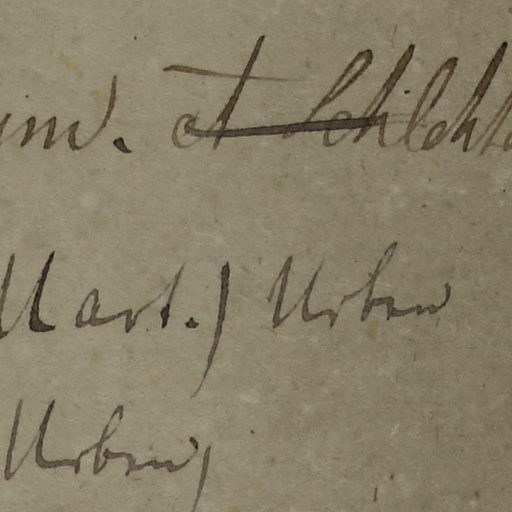 et Schlcht
Mart.) Urban
Urban